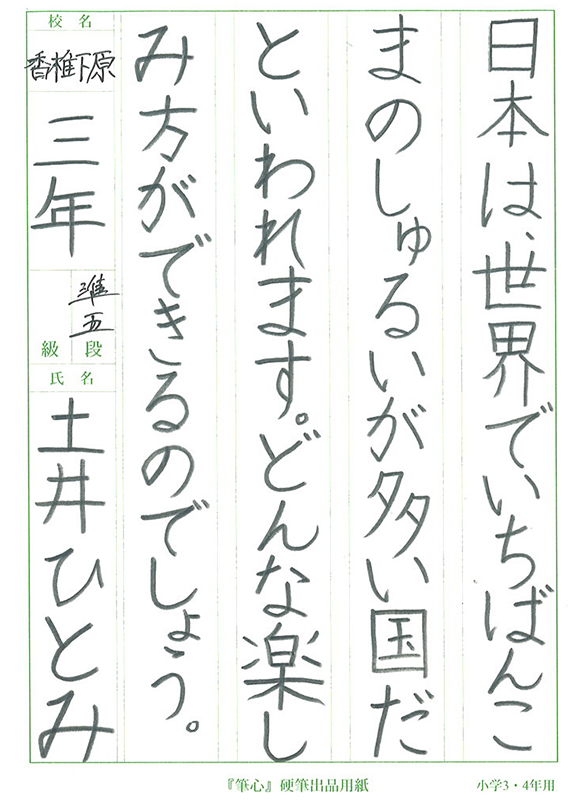 日本は、世界でいちばんこ
まのしゅるいが多い国だ
といわれます。どんな楽し
み方ができるのでしょう。
校名
香椎下原
三年
準五
級 段
氏名
土井ひとみ
『筆心』硬筆出品用紙
小学3・4年用